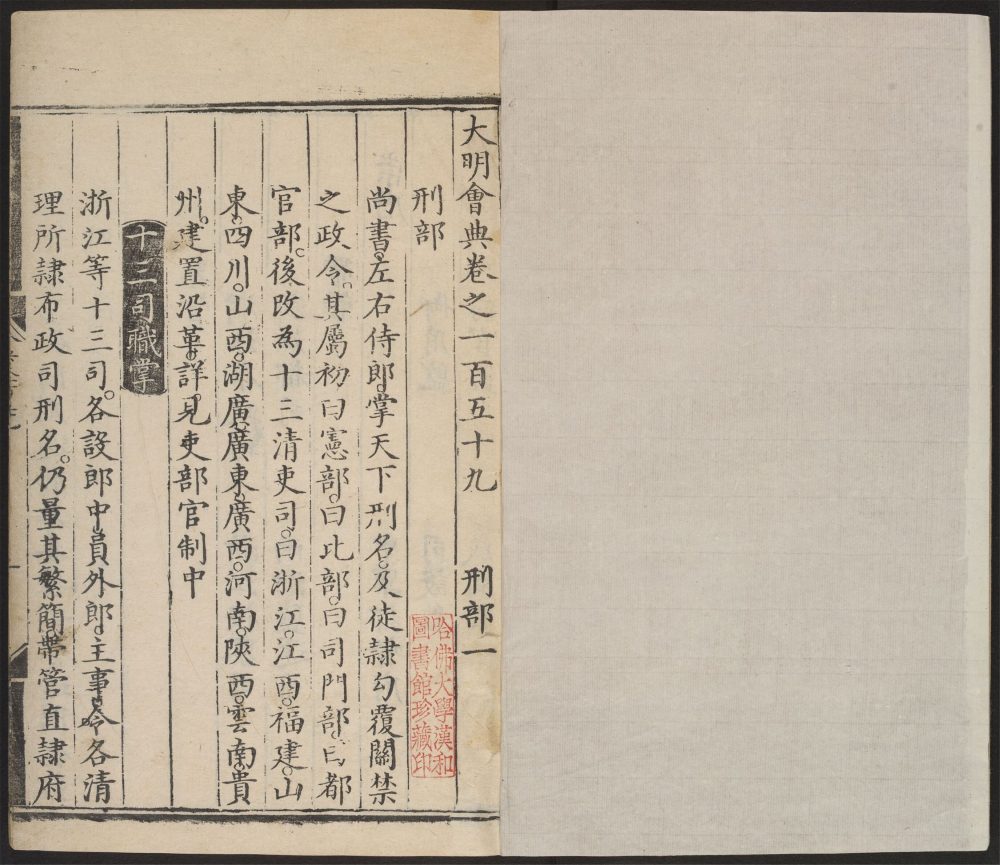 大明會典卷之一百五十九 刑部一
刑部
尚書。左右侍郎。掌天下刑名。及徒隸勾覆關禁
之政令。其屬初曰憲部。曰比部。曰司門部。曰都
官部。後改為十三清吏司。曰浙江。江西。福建。山
東。四川。山西。湖廣。廣東。廣西。河南。陝西。雲南。貴
州。建置沿革。詳見吏部官制中
十三司職掌
浙江等十三司。各設郎中。員外郎。主事。令各清
理所隸布政司刑名。仍量其繁簡。帶管直隸府
哈佛大學漢和
圖書館珍藏印